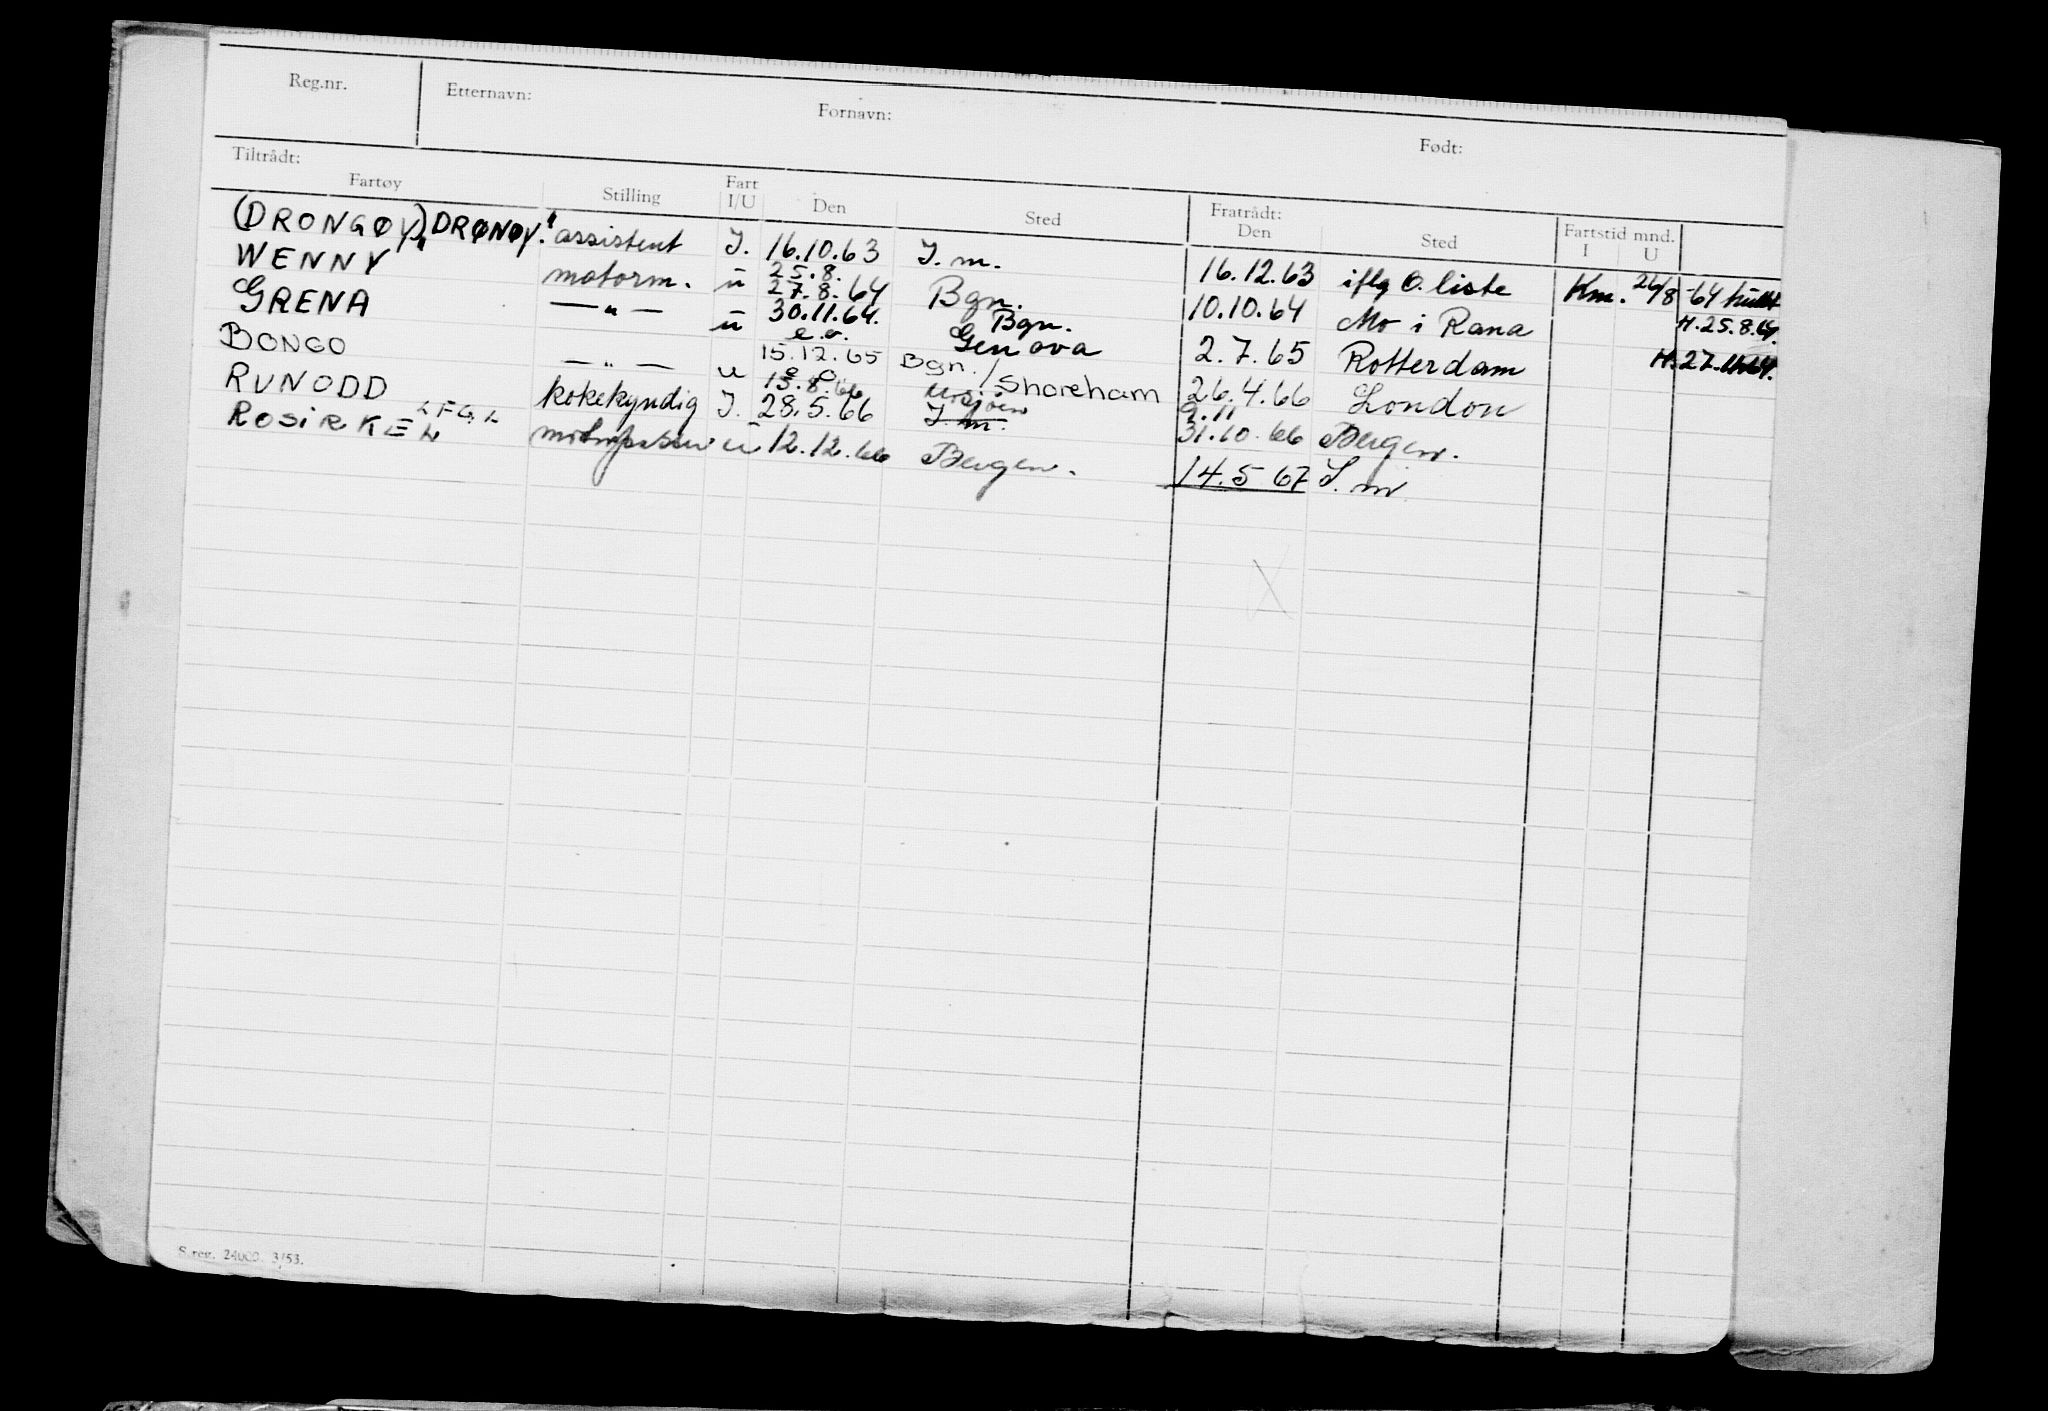 Reg.nr. Etternavn: Fornavn: Født:
Tiltrådt: Fratrådt:
Fartøy Stilling Fart I/U Den Sted Den Sted Fartstid mnd. I U
(DRONGØY) "DRØNØY." assistent I. 16.10.63 I. m. 16.12.63 iflg O. liste Km. 26/8 -64
WENNY motorm. u 25.8. 27.8.64 Bgn. 10.10.64 Mo i Rana H. 25.8.64.
GRENA — " — u 30.11.64. e.o. Bgn. Genova 2.7.65 Rotterdam H. 27.11.64.
BONGO — " — u 15.12.65 Bgn./Shoreham 26.4.66 London
RUNODD kokekyndig I. 13.8.66 28.5.66 Mosjøen I m. 9.11 31.10.66 Bergen.
ROSIRKEL LFGL u 12.12.66 Bergen. 14.5 67 I. m.
S.reg. 24000. 3/53.